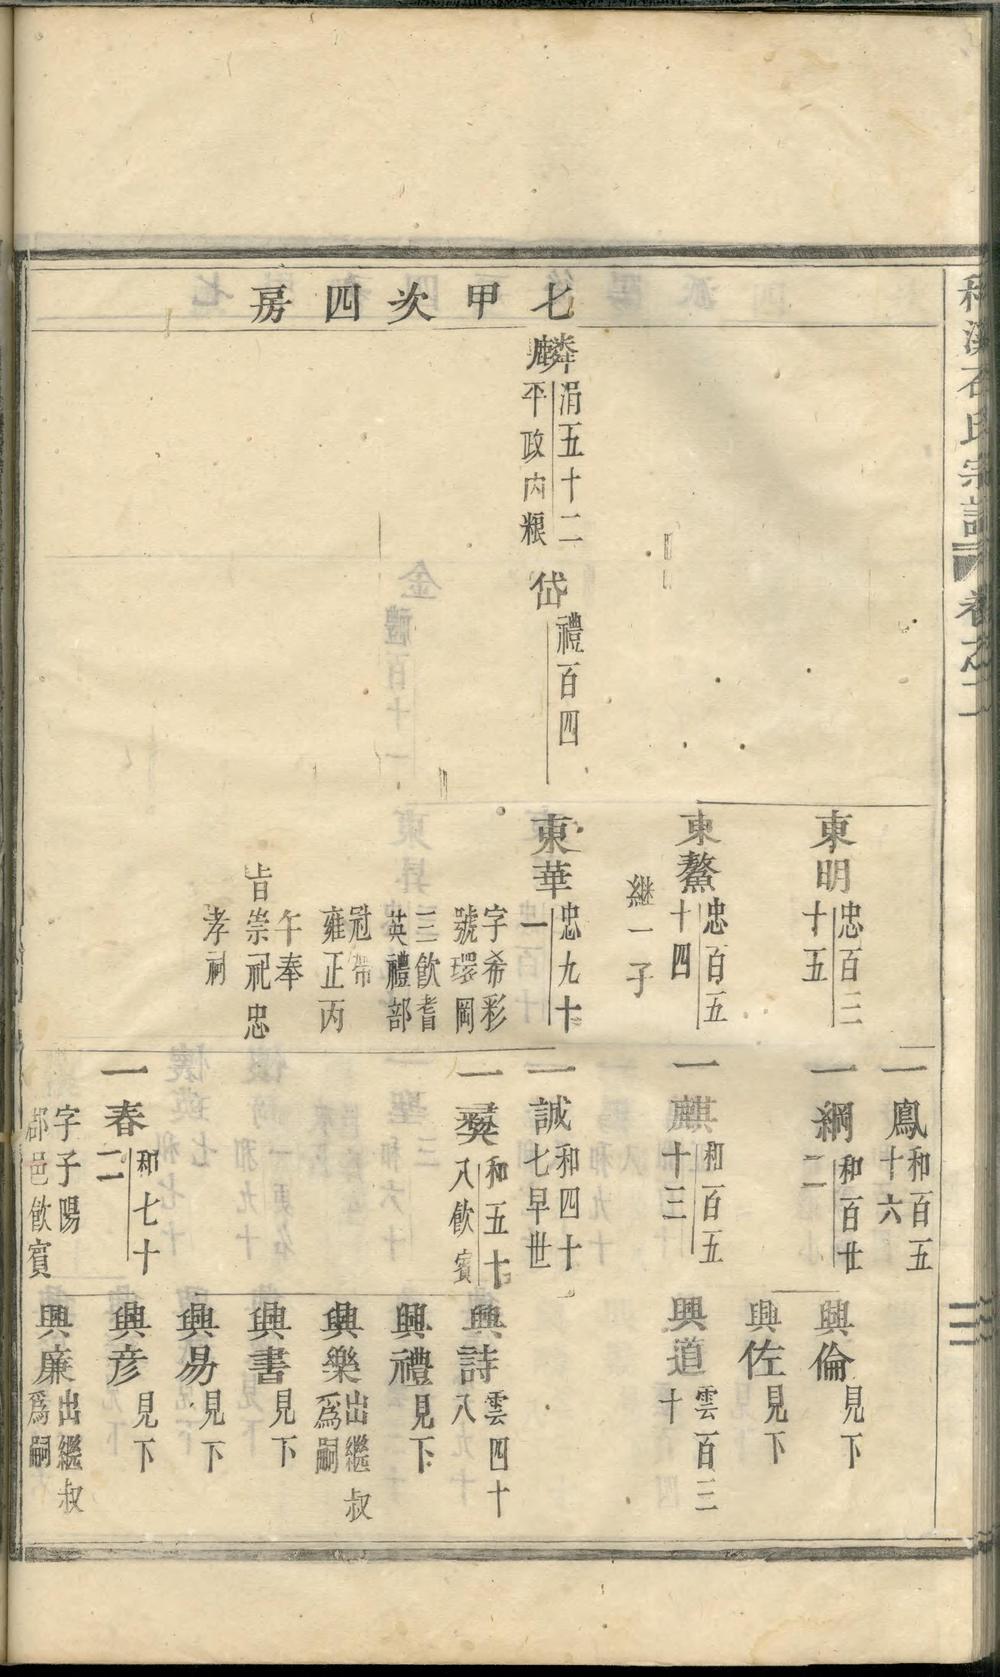 石氏宗譜 卷之二
七甲次四房
麟 涓五十二 平政內粮
岱 禮百四
東明 忠百三十五
東鰲 忠百五十四 繼一子
東華 忠九十一
字希彩號環岡
三飲耆英禮部
冠帶雍正丙
午奉旨崇祀忠
孝祠
一鳳 和百五十六
一綱 和百廿二
一麒 和百五十三
一誠 和四十七早世
一爕 和五十八飲賓
一春 和七十二
字子陽郡邑飲賓
興倫 見下
興佐 見下
興道 雲百三十
興詩 雲四十八
興禮 見下
興樂 出繼叔為嗣
興書 見下
興易 見下
興彥 見下
興廉 出繼叔為嗣